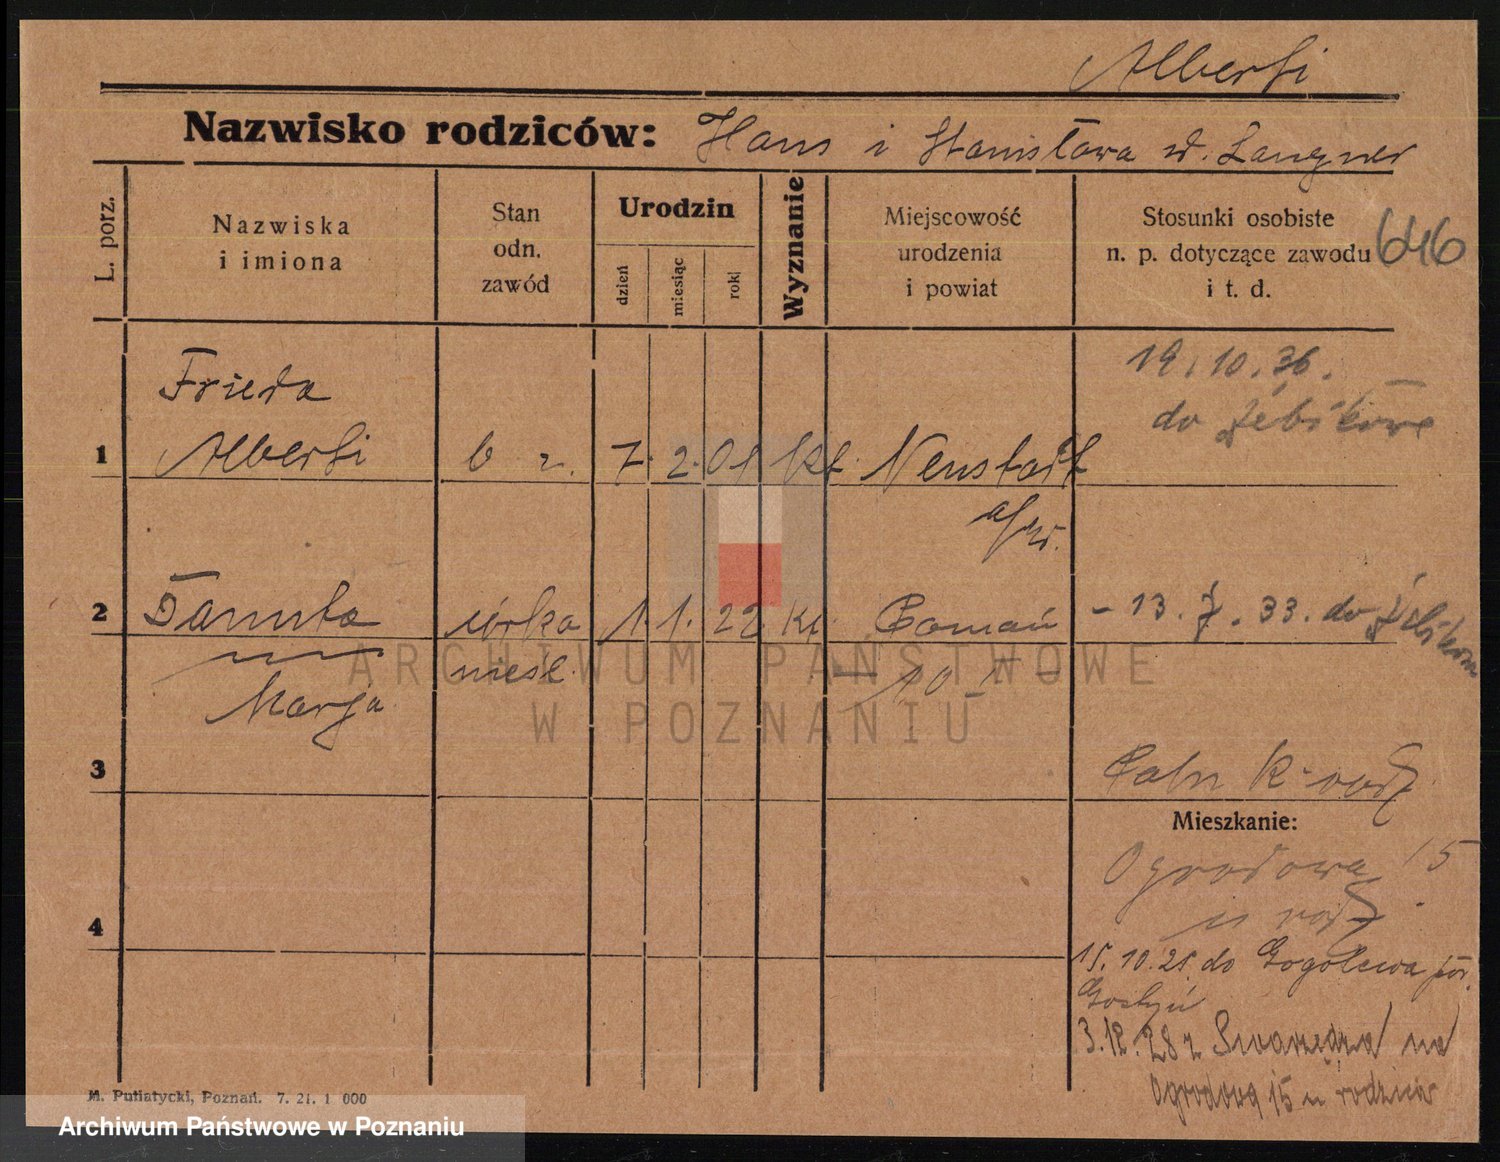 Alberti
Nazwisko rodziców: Hans i Stanisława Langner
L. porz.
Nazwiska
i imiona
Stan
odn.
zawód
Urodzin
dzień
miesiąc
rok
Wyznanie
Miejscowość
urodzenia
i powiat
Stosunki osobiste
n. p. dotyczące zawodu
i t. d.
646
19. 10. 36.
Frieda
1 Alberti b z. 7. 2. 01 kt. Neustadt
2 Danuta córka 1. 1. 22 kt. Poznań - 13. 7. 33. do
nieśl.
Marja
3
Mieszkanie:
Ogrodowa 15
u rodz.
4
15. 10. 25 do Gogolewa pow.
Gostyń
3. 12. 28 z Swarzędza na
Ogrodową 15 u rodziców
M. Putiatycki, Poznań. 7. 21. 1 000
ARCHIWUM PAŃSTWOWE
W POZNANIU
Archiwum Państwowe w Poznaniu